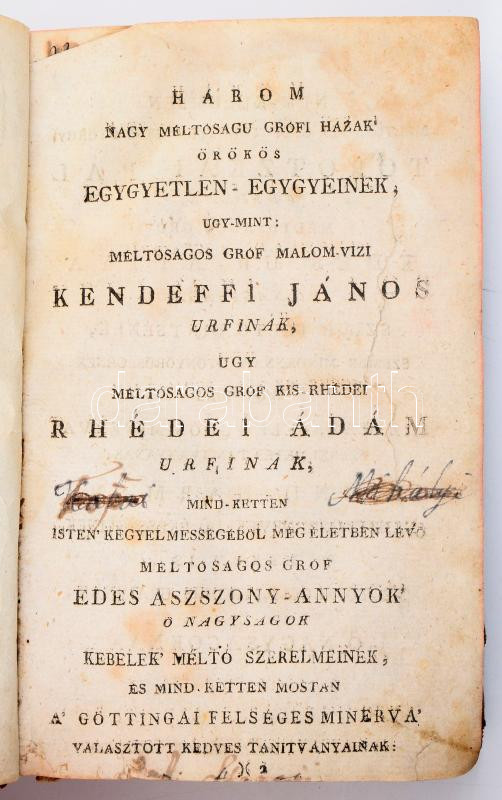 HÁROM
NAGY MÉLTÓSAGU GRÓFI HÁZAK'
ÖRÖKÖS
EGYGYETLEN-EGYGYEINEK,
UGY-MINT:
MÉLTÓSAGOS GRÓF MALOM-VIZI
KENDEFFI JÁNOS
URFINAK,
UGY
MÉLTÓSAGOS GRÓF KIS-RHÉDEI
RHÉDEI ÁDÁM
URFINAK,
MIND-KETTEN
ISTEN' KEGYELMESSÉGÉBÖL MÉG ÉLETBEN LÉVÖ
MÉLTÓSAGOS GRÓF
EDES ASZSZONY-ANNYOK'
Ö NAGYSAGOK
KEBELEK' MÉLTÓ SZERELMEINEK,
ÉS MIND-KETTEN MOSTAN
A' GÖTTINGAI FELSÉGES MINERVA'
VALASZTOTT KEDVES TANITVANYAINAK:
)( 2
darabanth